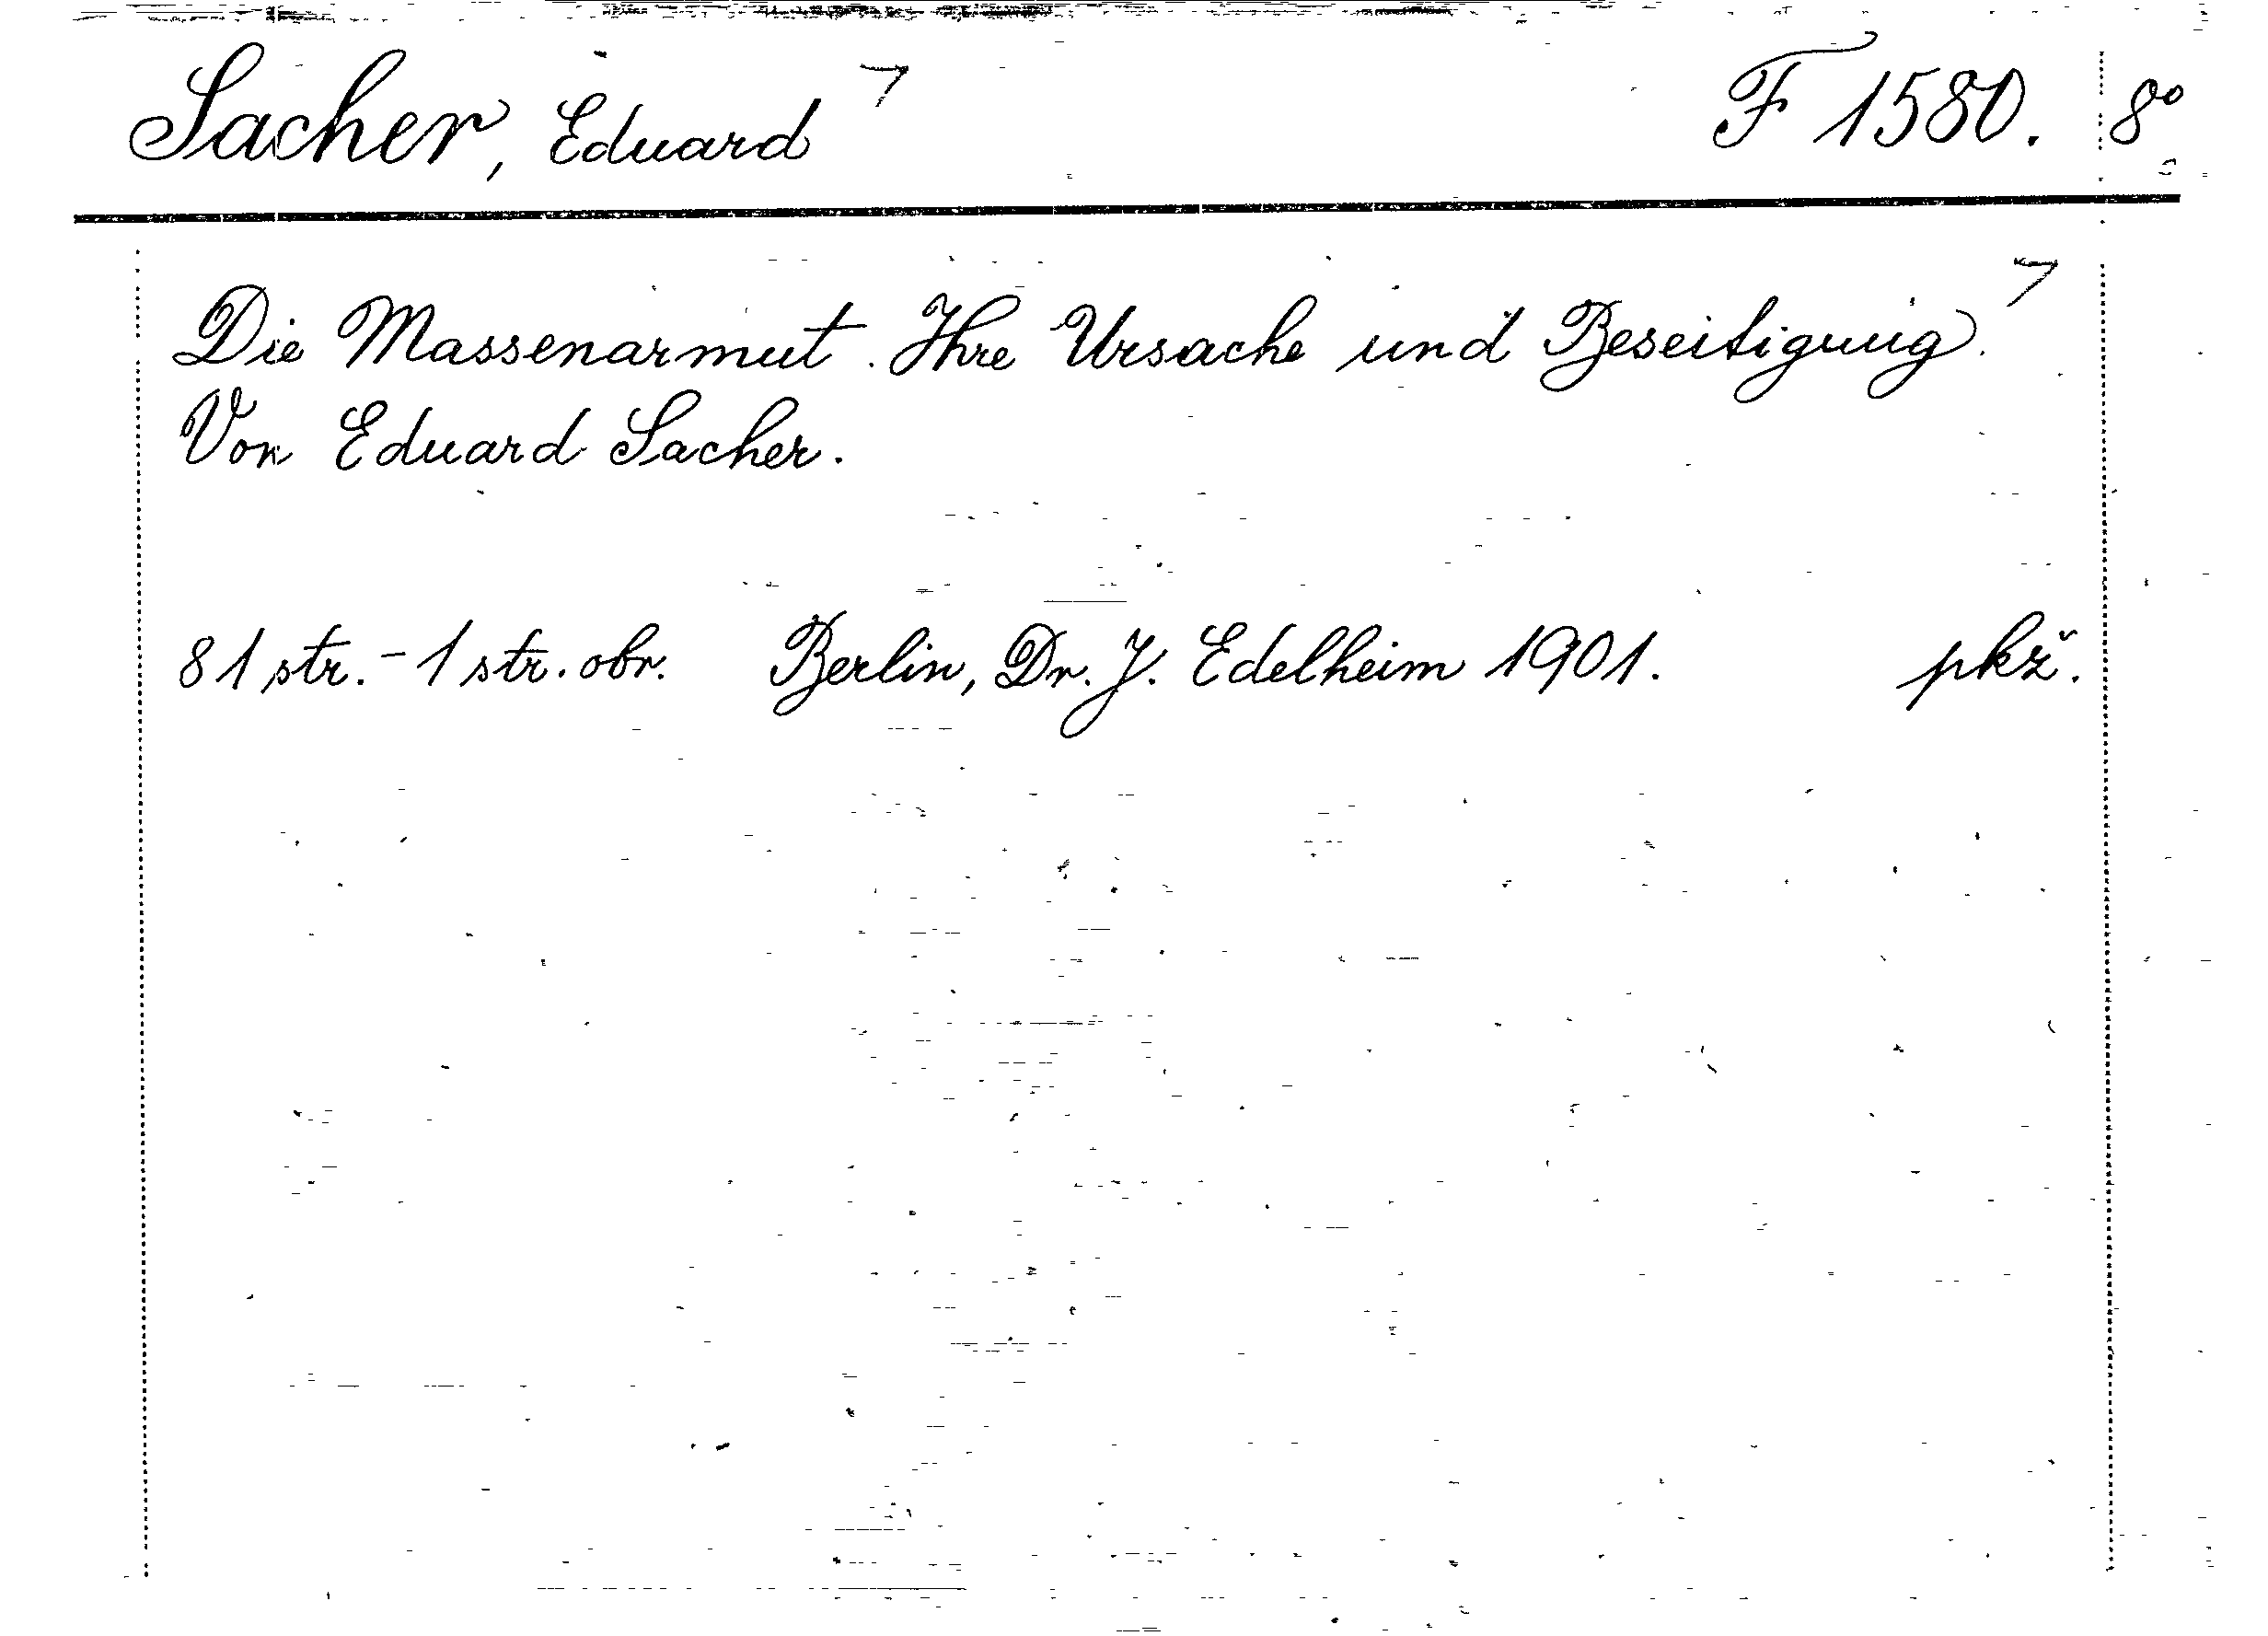 Sacher, Eduard F 1580. 8°
Die Massenarmut. Ihre Ursache und Beseitigung.
Von Eduard Sacher.
81 str. - 1 str. obr. Berlin, Dr. J. Edelheim 1901. pkž.